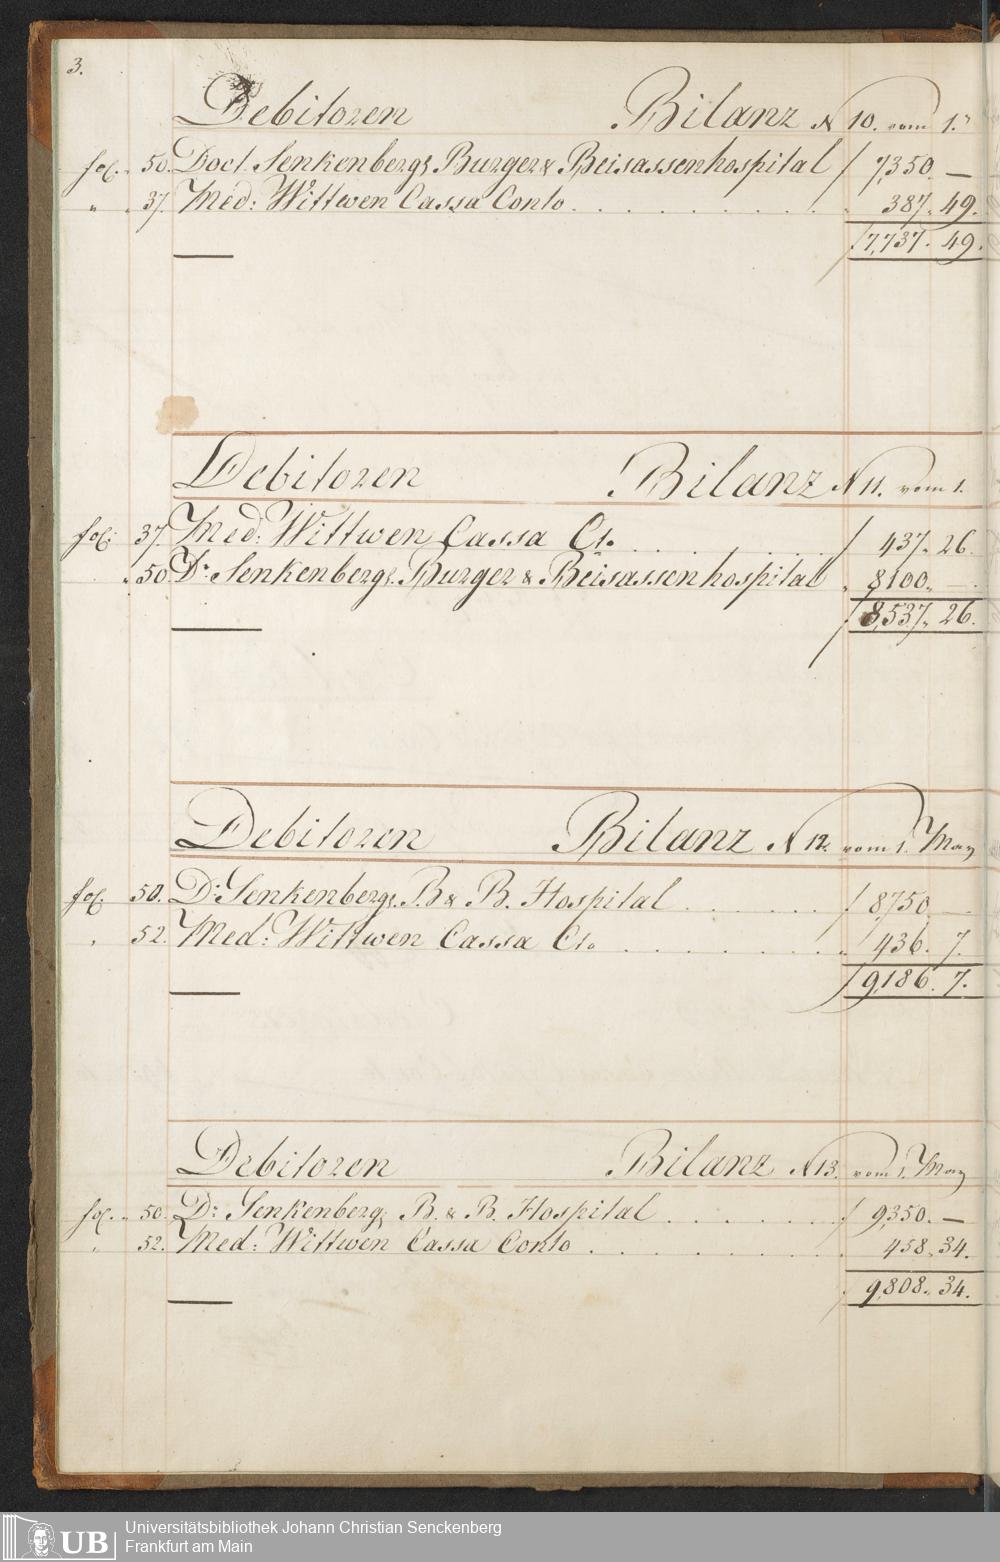 3.
Debitoren Bilanz N 10. vom 1.
fol. 50. Doct. Senkenbergs Burger & Beisassenhospital f 7,350. —
" " 37. Med: Wittwen Cassa Conto . . . . . . . . " 387. 49.
f 7,737. 49.
Debitoren Bilanz N 11. vom 1.
fol. 37. Med: Wittwen Cassa Cto. . . . . . . f 437. 26.
" 50. Dr. Senkenbergs Burger & Beisassenhospital " 8100. —
f 8,537. 26.
Debitoren Bilanz N 12. vom 1. May
fol. 50. Dr. Senkenbergs B. & B. Hospital . . . . . . f 8,750. —
" 52. Med: Wittwen Cassa Cto. . . . . . . . . " 436. 7.
f 9,186. 7.
Debitoren Bilanz N 13. vom 1. May
fol. " 50. Dr. Senkenbergs B. & B. Hospital . . . . . . f 9,350. —
" 52. Med: Wittwen Cassa Conto . . . . . . . . 458. 34.
f 9,808. 34.
UB
Universitätsbibliothek Johann Christian Senckenberg
Frankfurt am Main